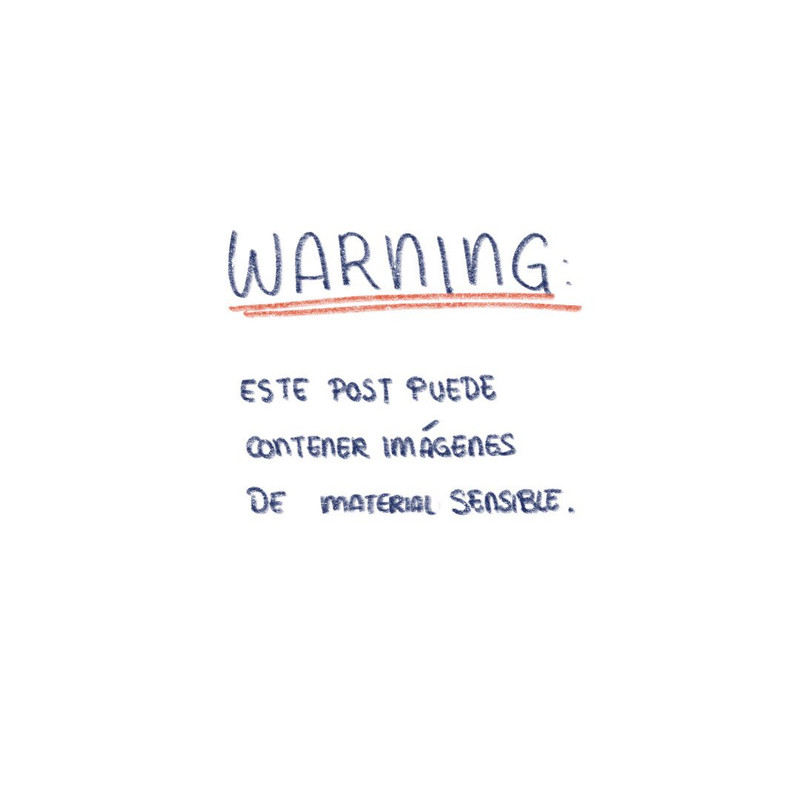 WARNING:
ESTE POST PUEDE
CONTENER IMÁGENES
DE MATERIAL SENSIBLE.